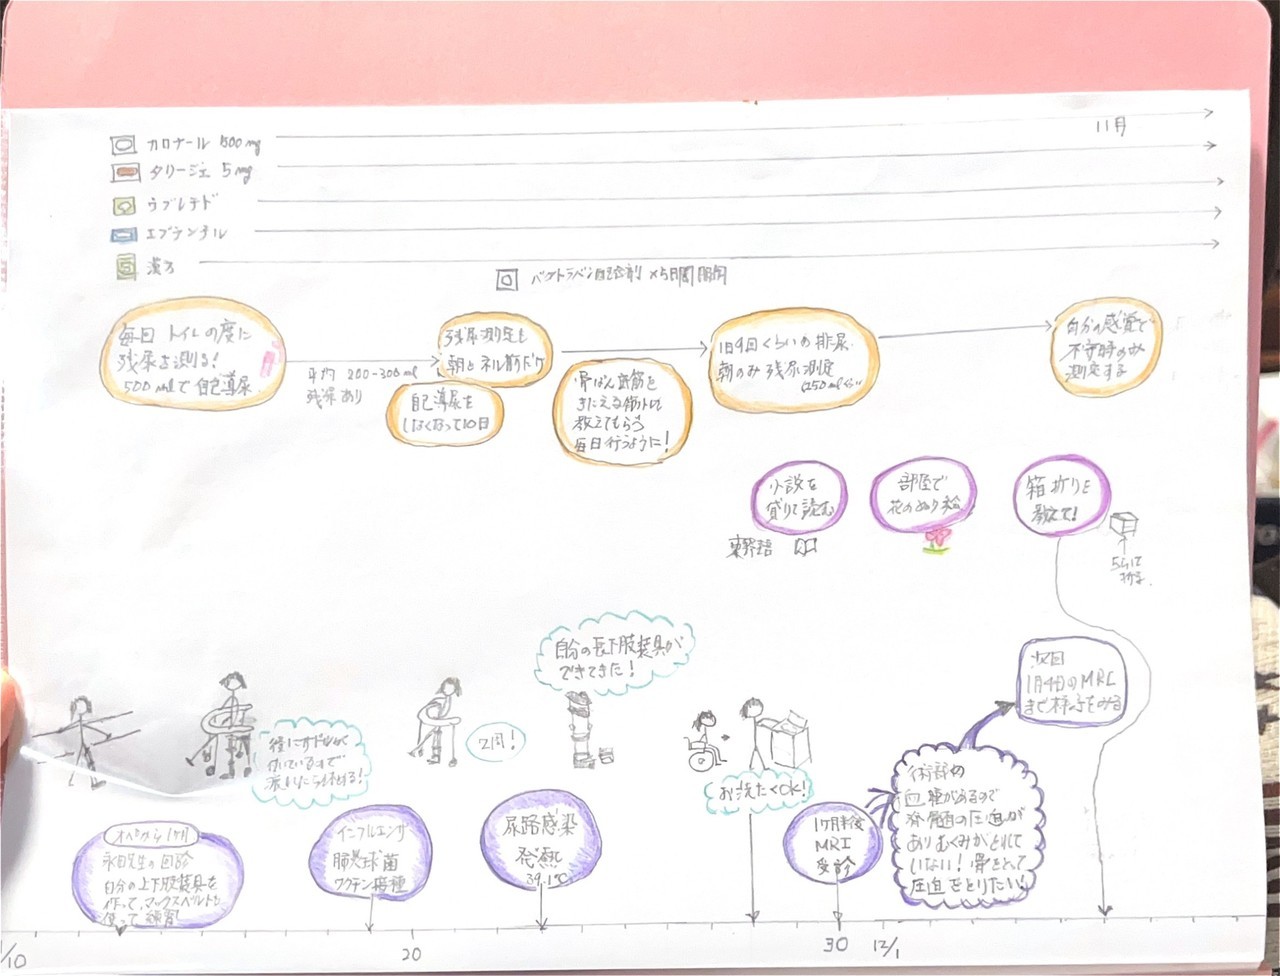 11月
カロナール 500mg
タリージェ 5mg
ウブレチド
エブランチル
漢方
×5日間 服用
毎回 トイレの度に
残尿を測る!
500mlで自己導尿
平均 200-300ml
残尿あり
残尿測定も
朝とネル前だけ
自己導尿を
しなくなって10日
骨ばん底筋を
きたえる筋トレを
教えてもらう
毎日行うように!
1日9回くらいの排尿
朝のみ残尿測定
自分の感覚で
不安時のみ
測定する
小説を
借りて読む
東野圭吾
部屋で
花のぬり絵
箱折りを
教えて!
自分の長下肢装具が
できてきた!
2周!
お洗たくOK!
次回
1月4日のMRI
まで様子をみる
オペから1ヶ月
永田先生の回診
自分の上下肢装具を
作って、マックスベルトも
使って練習!
インフルエンザ
肺炎球菌
ワクチン接種
尿路感染
発熱
39.1℃
1ヶ月半後
MRI
受診
術部の
血腫があるので
脊髄の圧迫が
ありむくみがとれて
いない! 骨をとって
圧迫をとりたい!
/10
20
30
12/1